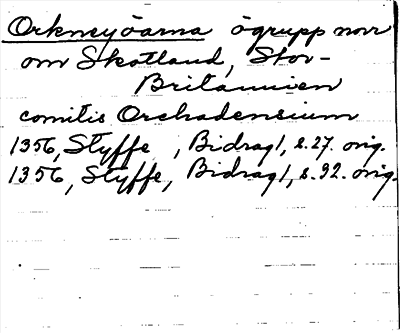 Orkneyöarna ögrupp norr
om Skottland, Stor-
Britannien
comitis Orchadensium
1356, Styffe, Bidrag 1, s. 27. orig.
1356, Styffe, Bidrag 1, s. 92. orig.